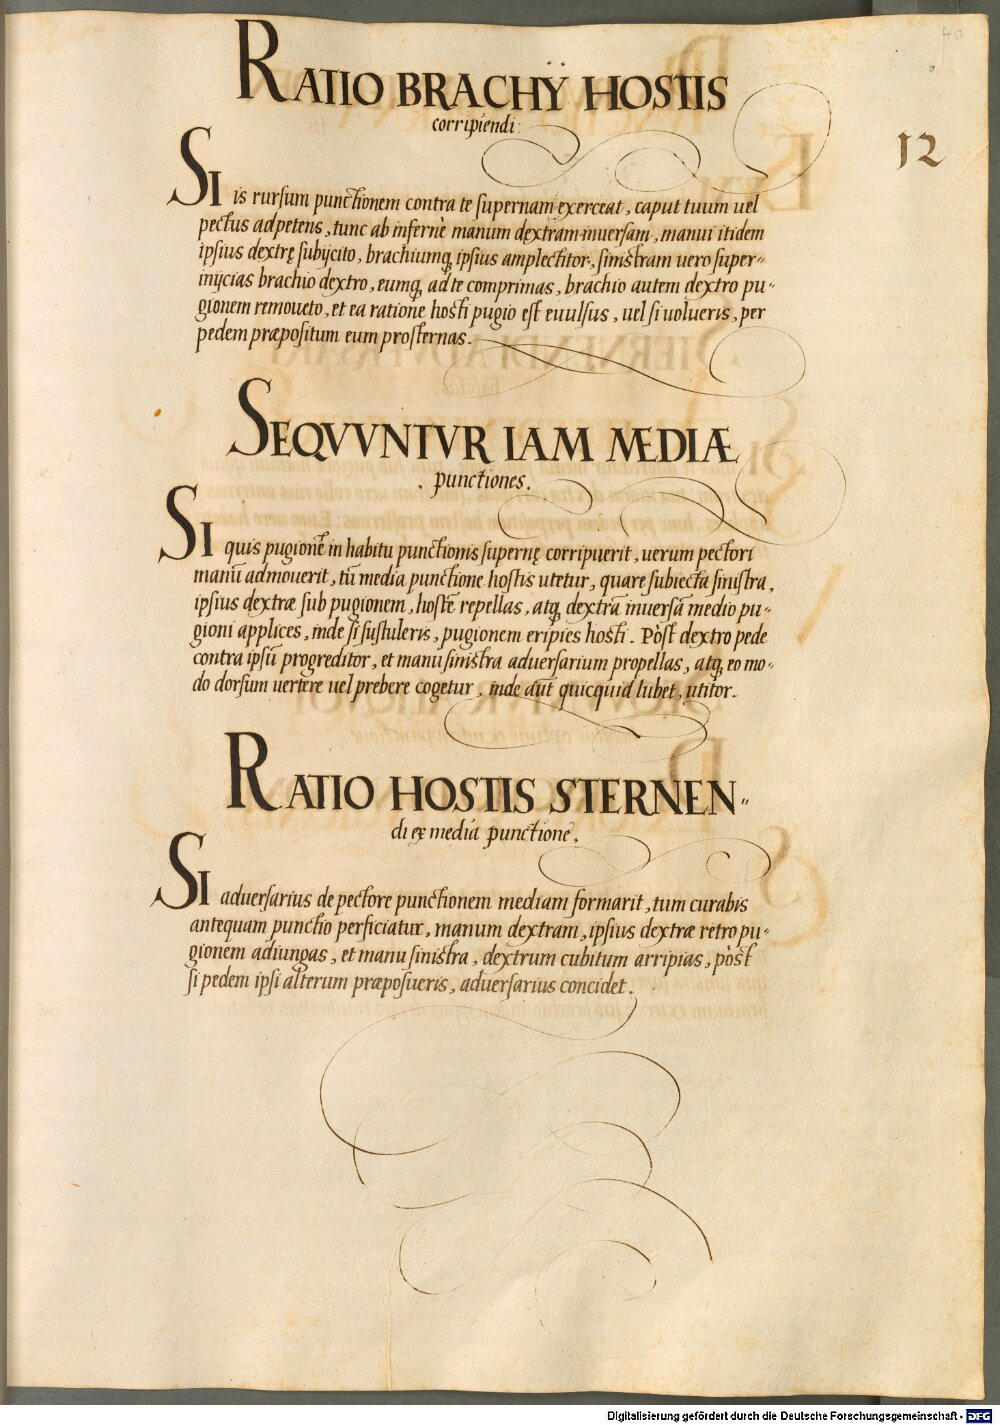 40
RATIO BRACHŸ HOSTIS
corripiendi:
12
SI is rursum punctionem contra te supernam exerceat, caput tuum uel
pectus adpetens, tunc ab infernè manum dęxtram inuersam, manui itidem
ipsius dextrę subijcito, brachiumq́ ipsius amplectitor, sinistram uero super=
inijcias brachio dextro, eumq́ ad te comprimas, brachio autem dextro pu=
gionem remoueto, et ea ratione hosti pugio est euulsus, uel si uolueris, per
pedem præpositum eum prosternas.
SEQVVNTVR IAM MEDIÆ
punctiones.
SI quis pugionē in habitu punctionis supernę corripuerit, uerum pectori
manū admouerit, tū media punctione hostis utetur, quare subiecta sinistra,
ipsius dextræ sub pugionem, hostē repellas, atq́ dextrā inuersā medio pu=
gioni applices, inde si sustuleris, pugionem eripies hosti. Pòst dextro pede
contra ipsū progreditor, et manu sinistra aduersarium propellas, atq́ eo mo=
do dorsum uertere uel prebere cogetur, inde aūt quicquid lubet, utitor.
RATIO HOSTIS STERNEN=
di ex media punctione.
SI aduersarius de pectore punctionem mediam formarit, tum curabis
antequam punctio perficiatur, manum dextram, ipsius dextræ retro pu=
gionem adiungas, et manu sinistra, dextrum cubitum arripias, pòst
si pedem ipsi alterum præposueris, aduersarius concidet.
Digitalisierung gefördert durch die Deutsche Forschungsgemeinschaft - DFG